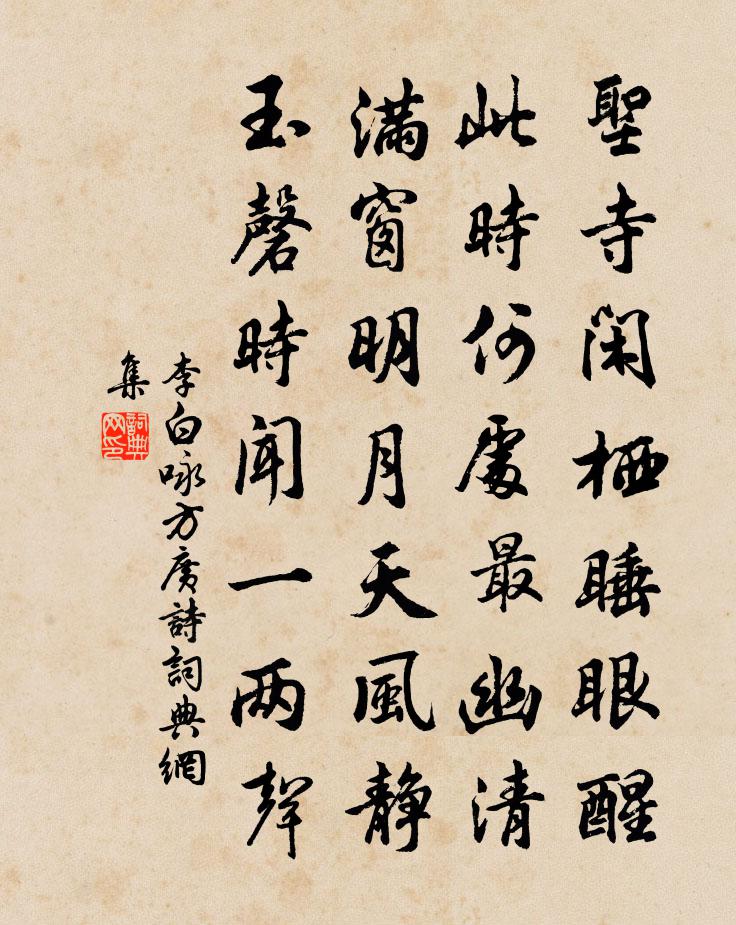 聖寺闲栖睡眼醒
此時何處最幽清
滿窗明月天風静
玉磬時聞一两聲
李白咏方廣詩詞典網
集
詞典
网印